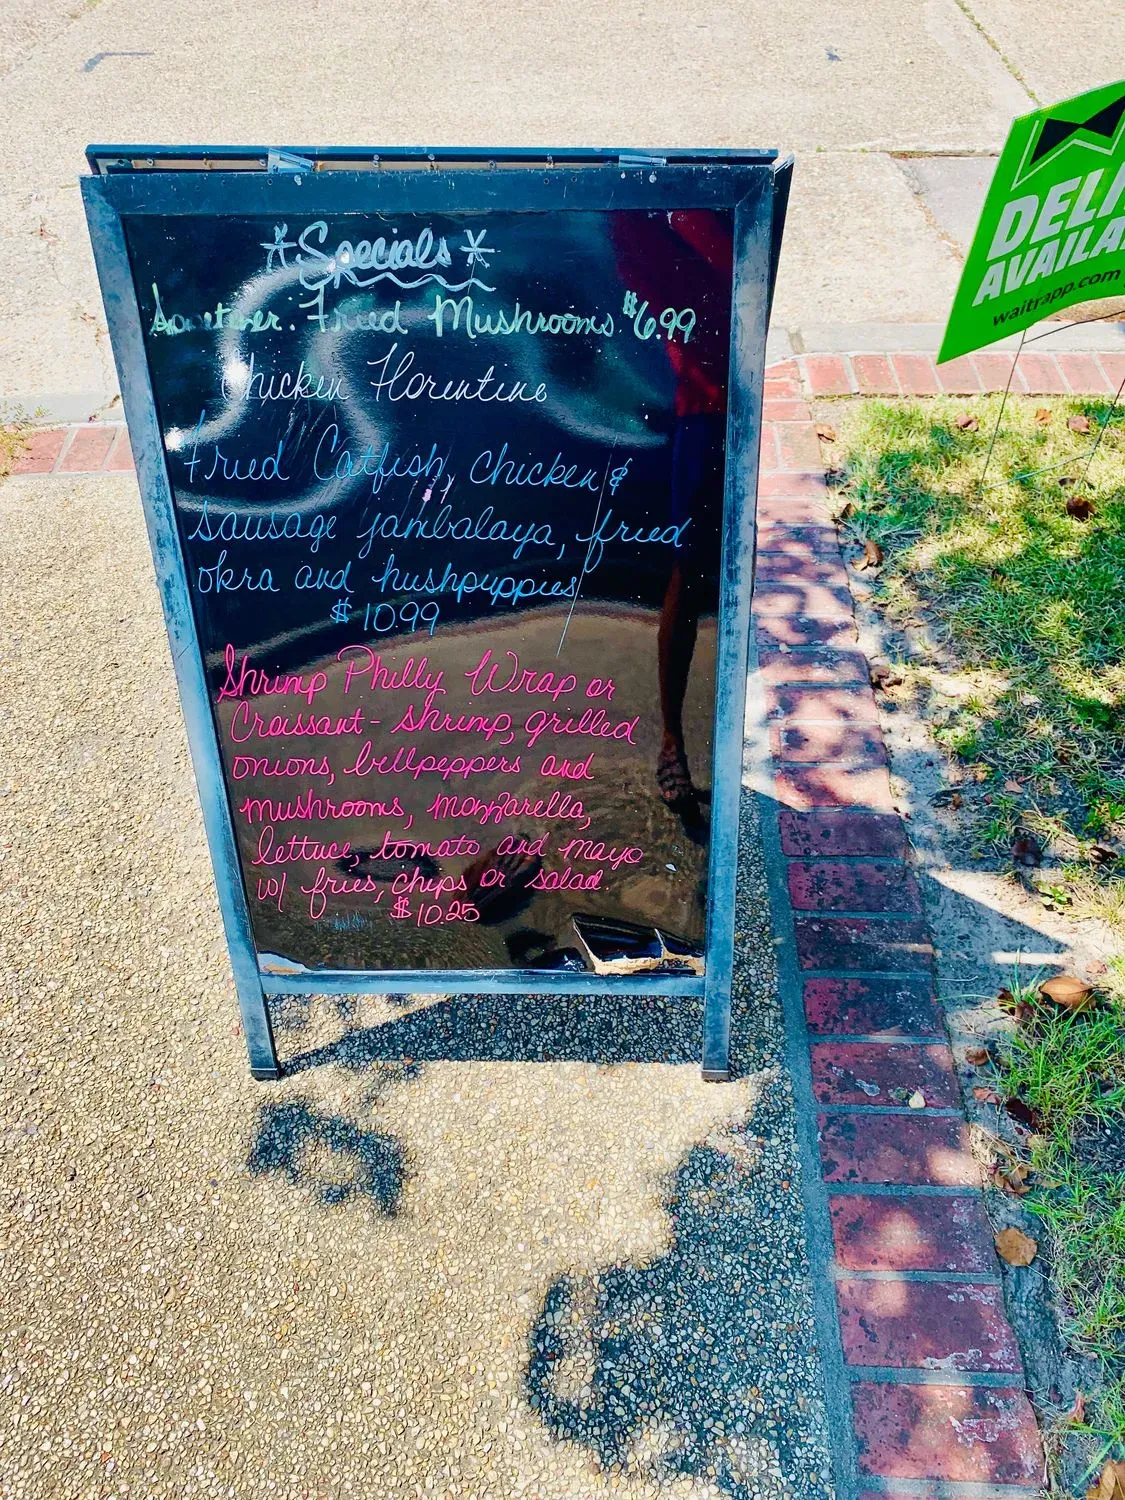 *Specials*
Fried Mushrooms $6.99
Chicken Florentine
Fried Catfish, chicken &
sausage jambalaya, fried
okra and hushpuppies
$10.99
Shrimp Philly Wrap or
Croissant - shrimp, grilled
onions, bellpeppers and
mushrooms, mozzarella,
lettuce, tomato and mayo
w/ fries, chips or salad.
$10.25
AVAILA
waitrapp.com